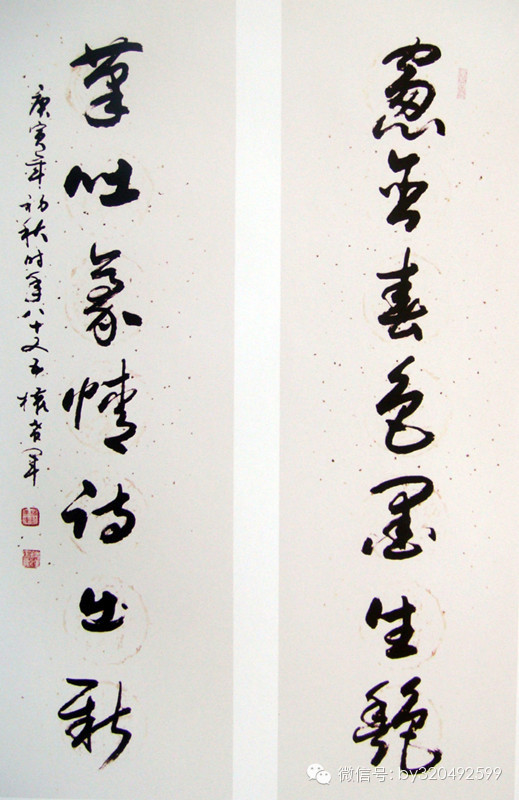 窻含春色墨生艷
筆吐豪情诗出新
庚寅年初秋时年八十又五
微信号: by320492599